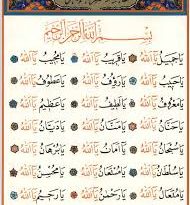 بسم الله الرحمن الرحيم
يَا جَمِيلُ يَا اَللهُ يَا قَرِيبُ يَا اَللهُ يَا مُجِيبُ يَا اَللهُ
يَا حَبِيبُ يَا اَللهُ يَا رَؤُفُ يَا اَللهُ يَا عَطُوفُ يَا اَللهُ
يَا مَعْرُوفُ يَا اَللهُ يَا لَطِيفُ يَا اَللهُ يَا عَظِيمُ يَا اَللهُ
يَا حَنَّانُ يَا اَللهُ يَا مَنَّانُ يَا اَللهُ يَا دَيَّانُ يَا اَللهُ
يَا سُبْحَانُ يَا اَللهُ يَا اَمَانُ يَا اَللهُ يَا بُرْهَانُ يَا اَللهُ
يَا سُلْطَانُ يَا اَللهُ يَا مُسْتَعَانُ يَا اَللهُ يَا مُحْسِنُ يَا اَللهُ
يَا مُتَعَالُ يَا اَللهُ يَا رَحْمٰنُ يَا اَللهُ يَا رَحِيمُ يَا اَللهُ